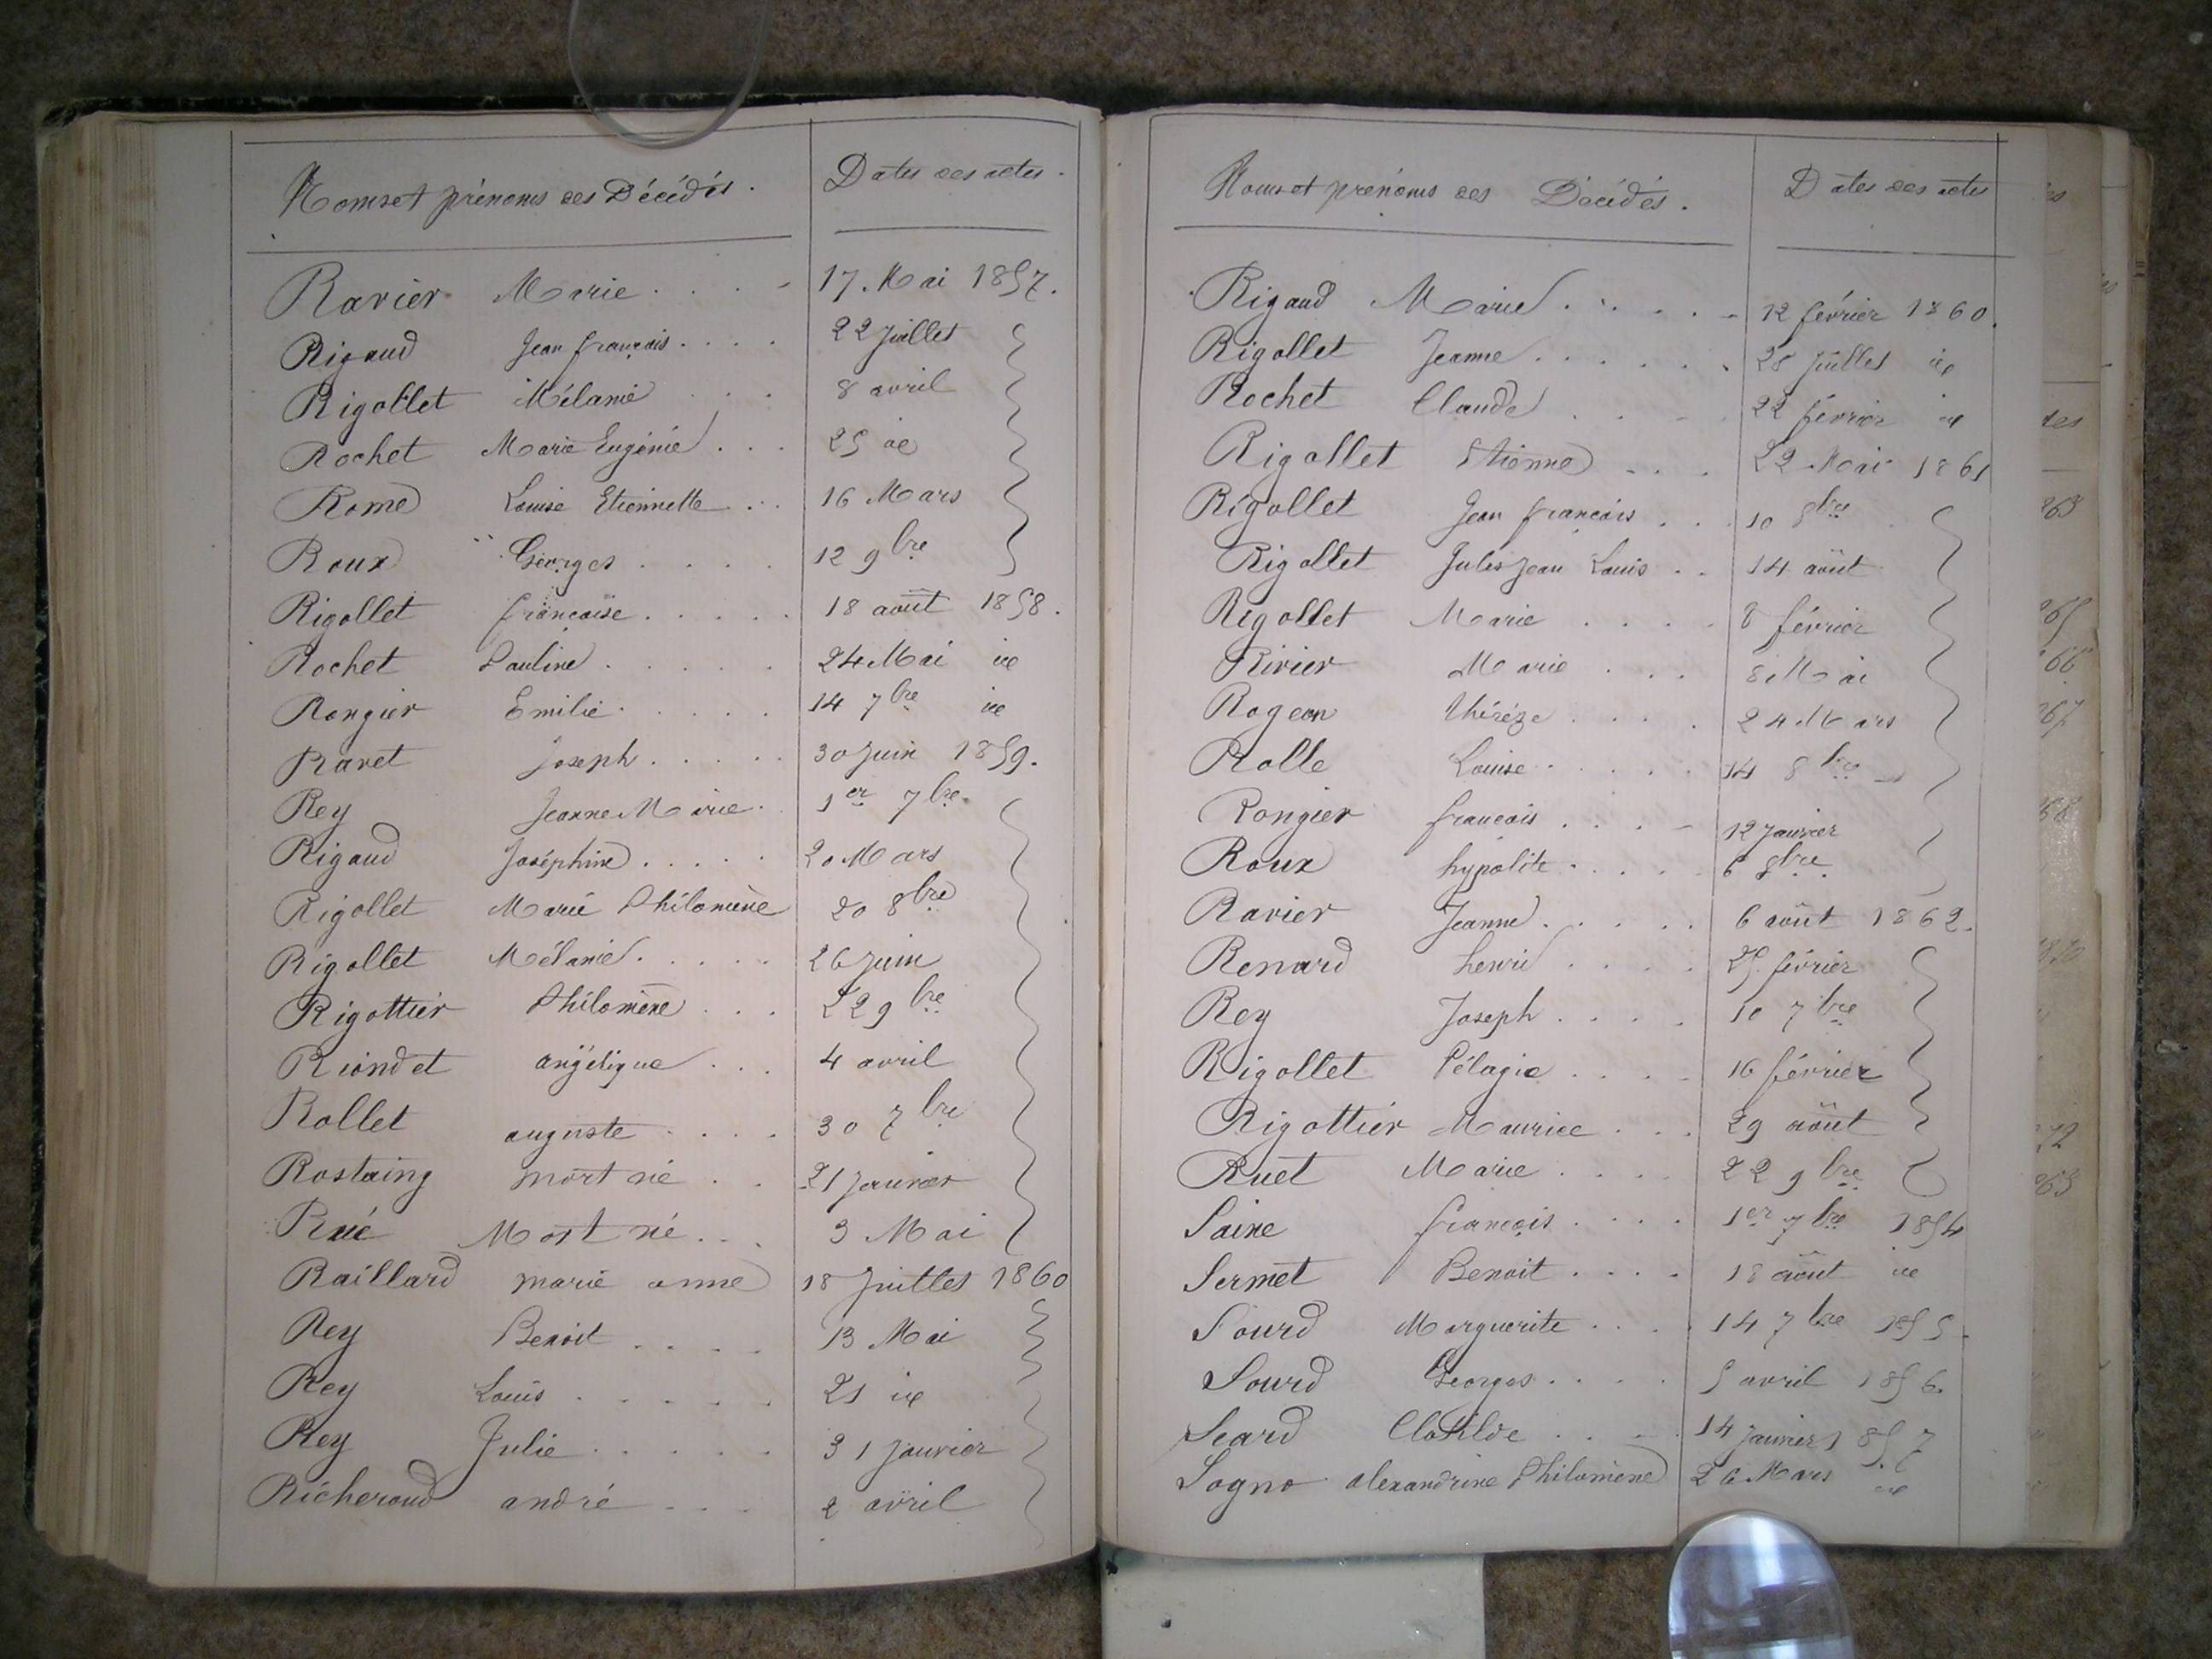 Noms et prénoms des Décédés. Dates des actes.
Ravier Marie . . . . 17 Mai 1857.
Rigaud Jean françois . . . . 22 Juillet
Rigollet Mélanie . . . 8 avril
Rochet Marie Eugénie . . . 25 id
Rome Louise Etiennette . . . 16 Mars
Roux Georges . . . . 12 9bre
Rigollet françoise . . . . . 18 août 1858.
Rochet Pauline . . . . . 24 Mai id
Rongier Emilie . . . . . 14 7bre id
Ravet Joseph . . . . . 30 Juin 1859.
Rey Jeanne Marie . 1er 7bre
Rigaud Joséphine . . . . . 20 Mars
Rigollet Marie Philomène 20 8bre
Rigollet Mélanie . . . . . 26 Juin
Rigottier Philomène . . . 22 9bre
Riondet angélique . . . 4 avril
Rollet auguste . . . . 30 7bre
Rostaing mort né . . 21 Janvier
Rué Mort né . . . 3 Mai
Raillard marie anne 18 Juillet 1860
Rey Benoit . . . . 13 Mai
Rey Louis . . . . . 21 id
Rey Julie . . . . . 31 Janvier
Richeroud andré . . . 2 avril
Noms et prénoms des Décédés. Dates des actes
Rigaud Marie . . . . . 12 février 1860.
Rigollet Jeanne . . . . . . 28 Juillet id
Rochet Claude . . . 22 février id
Rigollet Etienne . . . 22 Mai 1861
Rigollet Jean françois . . . 10 8bre
Rigollet Jules Jean Louis . . 14 août
Rigollet Marie . . . . 8 février
Rivier Marie . . . 8 Mai
Rogeon thérèze . . . . 24 Mars
Rolle Louise . . . . . 14 8bre
Rongier françois . . . . 12 Janvier
Roux hypolite . . . . . 6 9bre
Ravier Jeanne . . . . . 6 août 1862.
Renard henri . . . . 25 février
Rey Joseph . . . . 10 7bre
Rigollet Pélagie . . . . 16 février
Rigottier Maurice . . . 29 août
Ruet Marie . . . . 22 9bre
Saine françois . . . . 1er 7bre 1854
Sermet Benoit . . . . 18 août id
Sourd Marguerite . . . . 14 7bre 1855.
Sourd Georges . . . . 5 avril 1856.
Seard Clotilde . . . . 14 Janvier 1857
Sogno alexandrine Philomène 26 Mars id